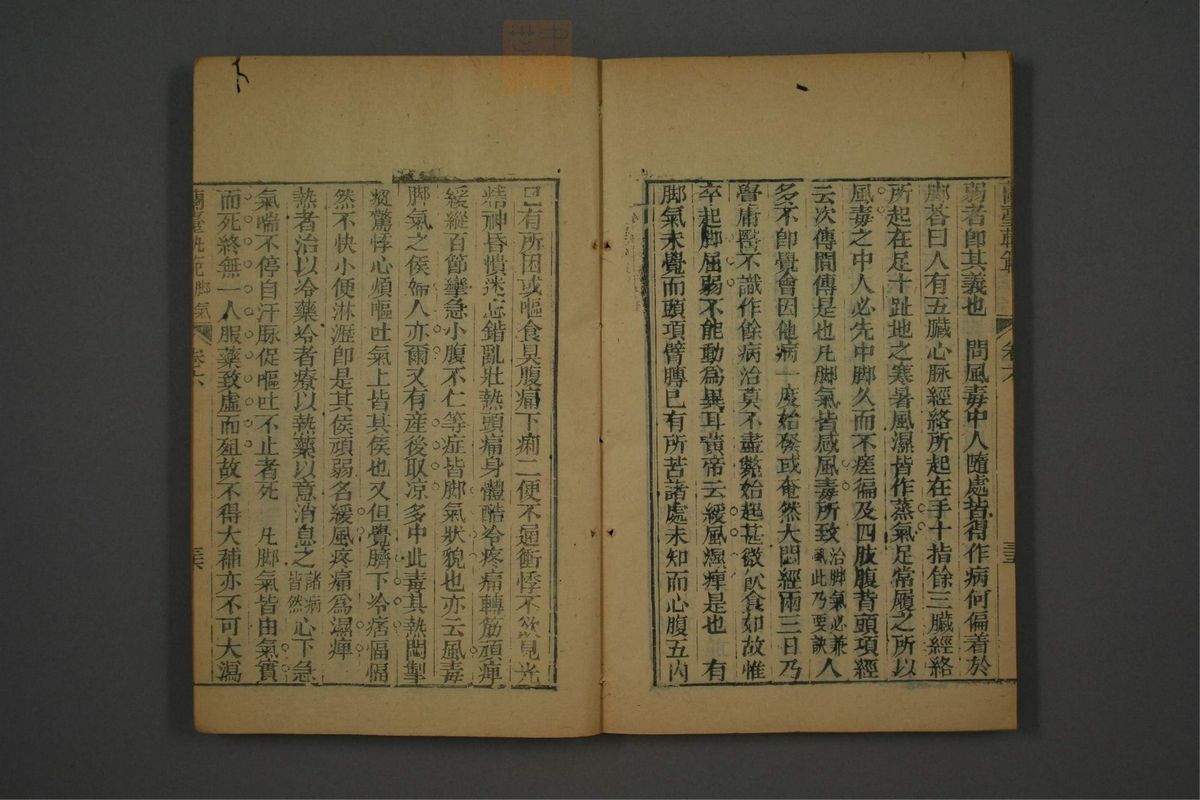 弱者卽其義也　問風毒中人隨處皆得作病何偏着於
脚答曰人有五臟心脉經絡所起在手十指餘三臟經絡
所起在足十趾地之寒暑風濕皆作蒸氣足常履之所以
風毒之中人必先中脚久而不瘥徧及四肢腹背頭項經
云次傳間傳是也凡脚氣皆感風毒所致治脚氣必兼風此乃要訣人
多不卽覺會因他病一度始發或奄然大悶經兩三日乃
覺庸醫不識作餘病治莫不盡斃始起甚微飮食如故惟
卒起脚屈弱不能動爲異耳黃帝云緩風濕痺是也　有
脚氣未覺而頭項臂膊已有所苦諸處未知而心腹五內
已有所困或嘔食臭腹痛下痢二便不通衝悸不欲見光
精神昏憒迷忘錯亂壯熱頭痛身體酷冷疼痛轉筋頑痺
緩縱百節攣急小腹不仁等症皆脚氣狀貌也亦云風毒
脚氣之侯婦人亦爾又有產後取凉多中此毒其熱悶掣
瘲驚悸心煩嘔吐氣上皆其侯也又但覺臍下冷痞愊愊
然不快小便淋瀝卽是其侯頑弱名緩風疼痛爲濕痺
熱者治以冷藥冷者療以熱藥以意消息之諸病皆然心下急
氣喘不停自汗脉促嘔吐不止者死　凡脚氣皆由氣實
而死終無一人服藥致虛而殂故不得大補亦不可大瀉
蘭臺軌範脚氣　卷六